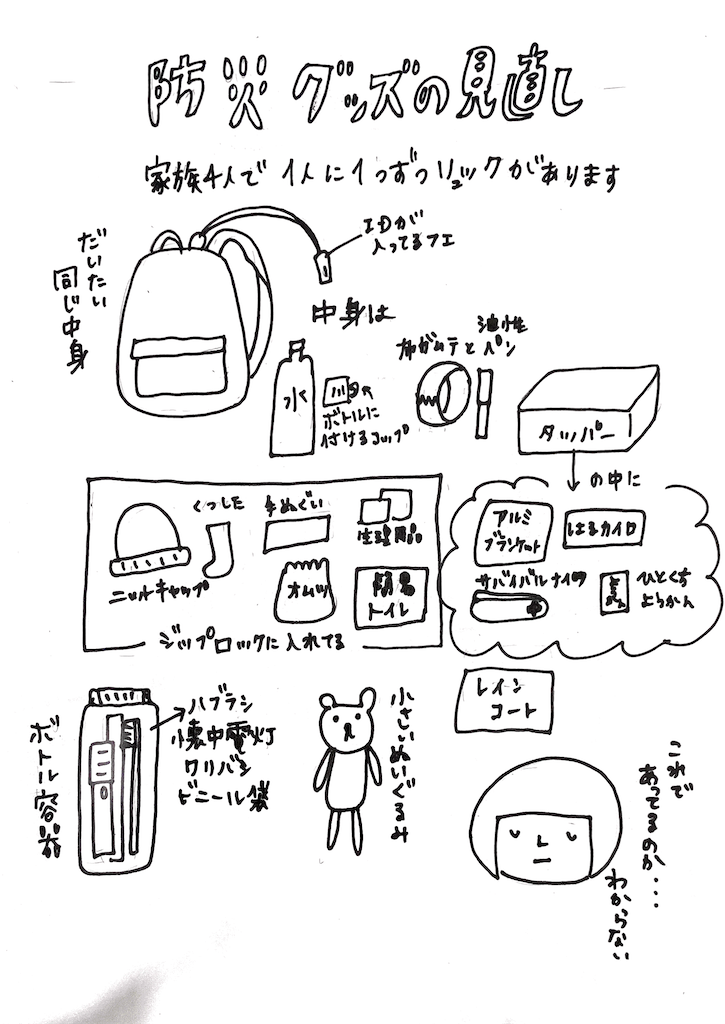 防災グッズの見直し
家族4人で1人に1つずつリュックがあります
だいたい
同じ中身
IDが
入ってるフエ
中身は
水
ボトルに
付けるコップ
布ガムテと
油性
ペン
タッパー
の中に
くつした
手ぬぐい
生理用品
ニットキャップ
オムツ
簡易
トイレ
ジップロックに入れてる
アルミ
ブランケット
はるカイロ
サバイバルナイフ
ようかん
ひとくち
ようかん
ボトル容器
ハブラシ
懐中電灯
ワリバシ
ビニール袋
小さいぬいぐるみ
レイン
コート
これで
あってるのか・・・
わからない